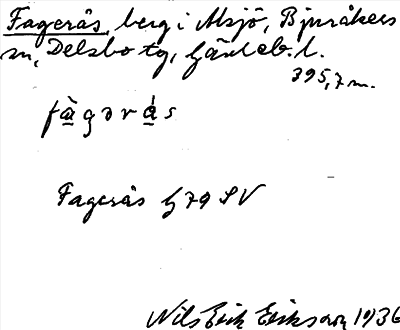 Fagerås, berg i Alsjö, Bjuråkers
sn, Delsbo tg, Gävleb. l.
395,7 m.
fàgərás
Fagerås G79 SV
Nils Erik Eriksson 1936